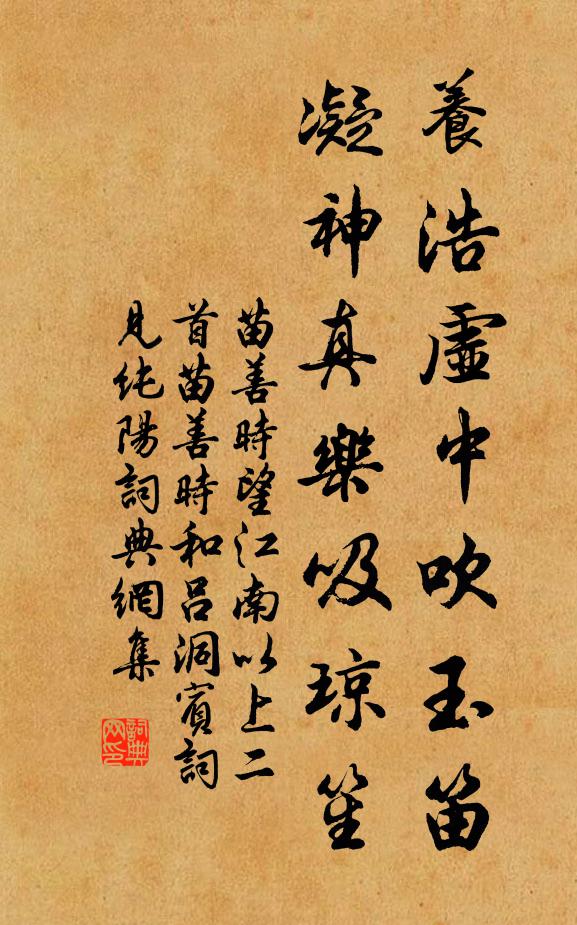 養浩虛中吹玉笛
凝神真樂吸琼笙
苗善時望江南以上二
首苗善時和吕洞賓詞
見純陽詞典網集
詞典網印